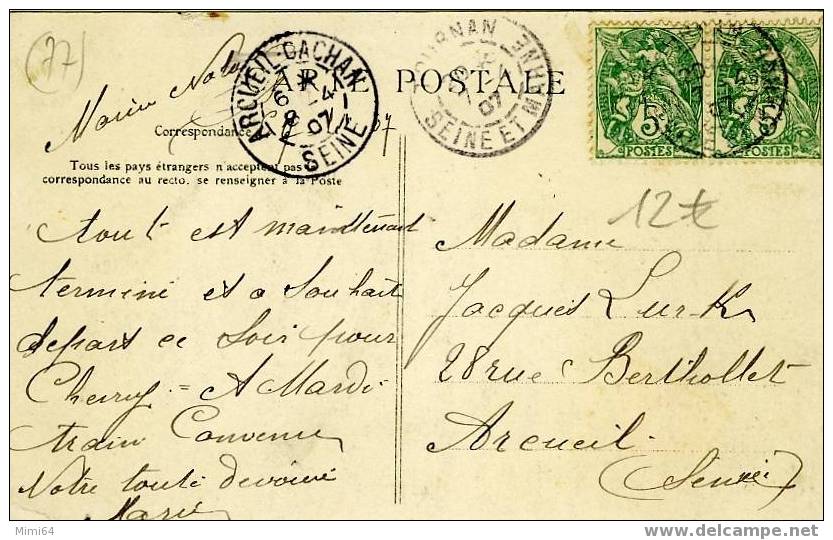 (77)
CARTE POSTALE
ARCUEIL-CACHAN
6 -4
07
SEINE
TOURNAN
07
SEINE ET MARNE
5
POSTES
5
POSTES
Correspondance
Tous les pays étrangers n'acceptent pas
correspondance au recto. se renseigner à la Poste
12€
tout est maintenant
terminé et a souhait
départ ce soir pour
= A Mardi
train Convenu
Votre toute dévouée
Marie
Madame
Jacques
28 rue Berthollet
Arcueil
(Seine)
Mimi64
www.delcampe.net